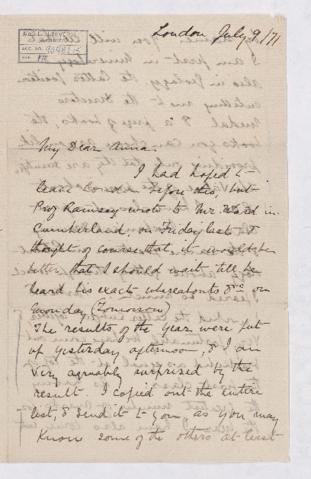 London July 9/71
My Dear Anna.
I had hoped to
leave London before this, but
Prof Ramsay wrote to Mr Ward in
Cumberland, on Friday last & I
thought of course that it would be
better that I should wait till he
heard his exact whereabouts &c on
Monday (Tomorrow)
The results of the Year were put
up yesterday afternoon, & I am
very agreeably surprised by the
result. I copied out the entire
list, & send it to you, as you may
know some of the others at least